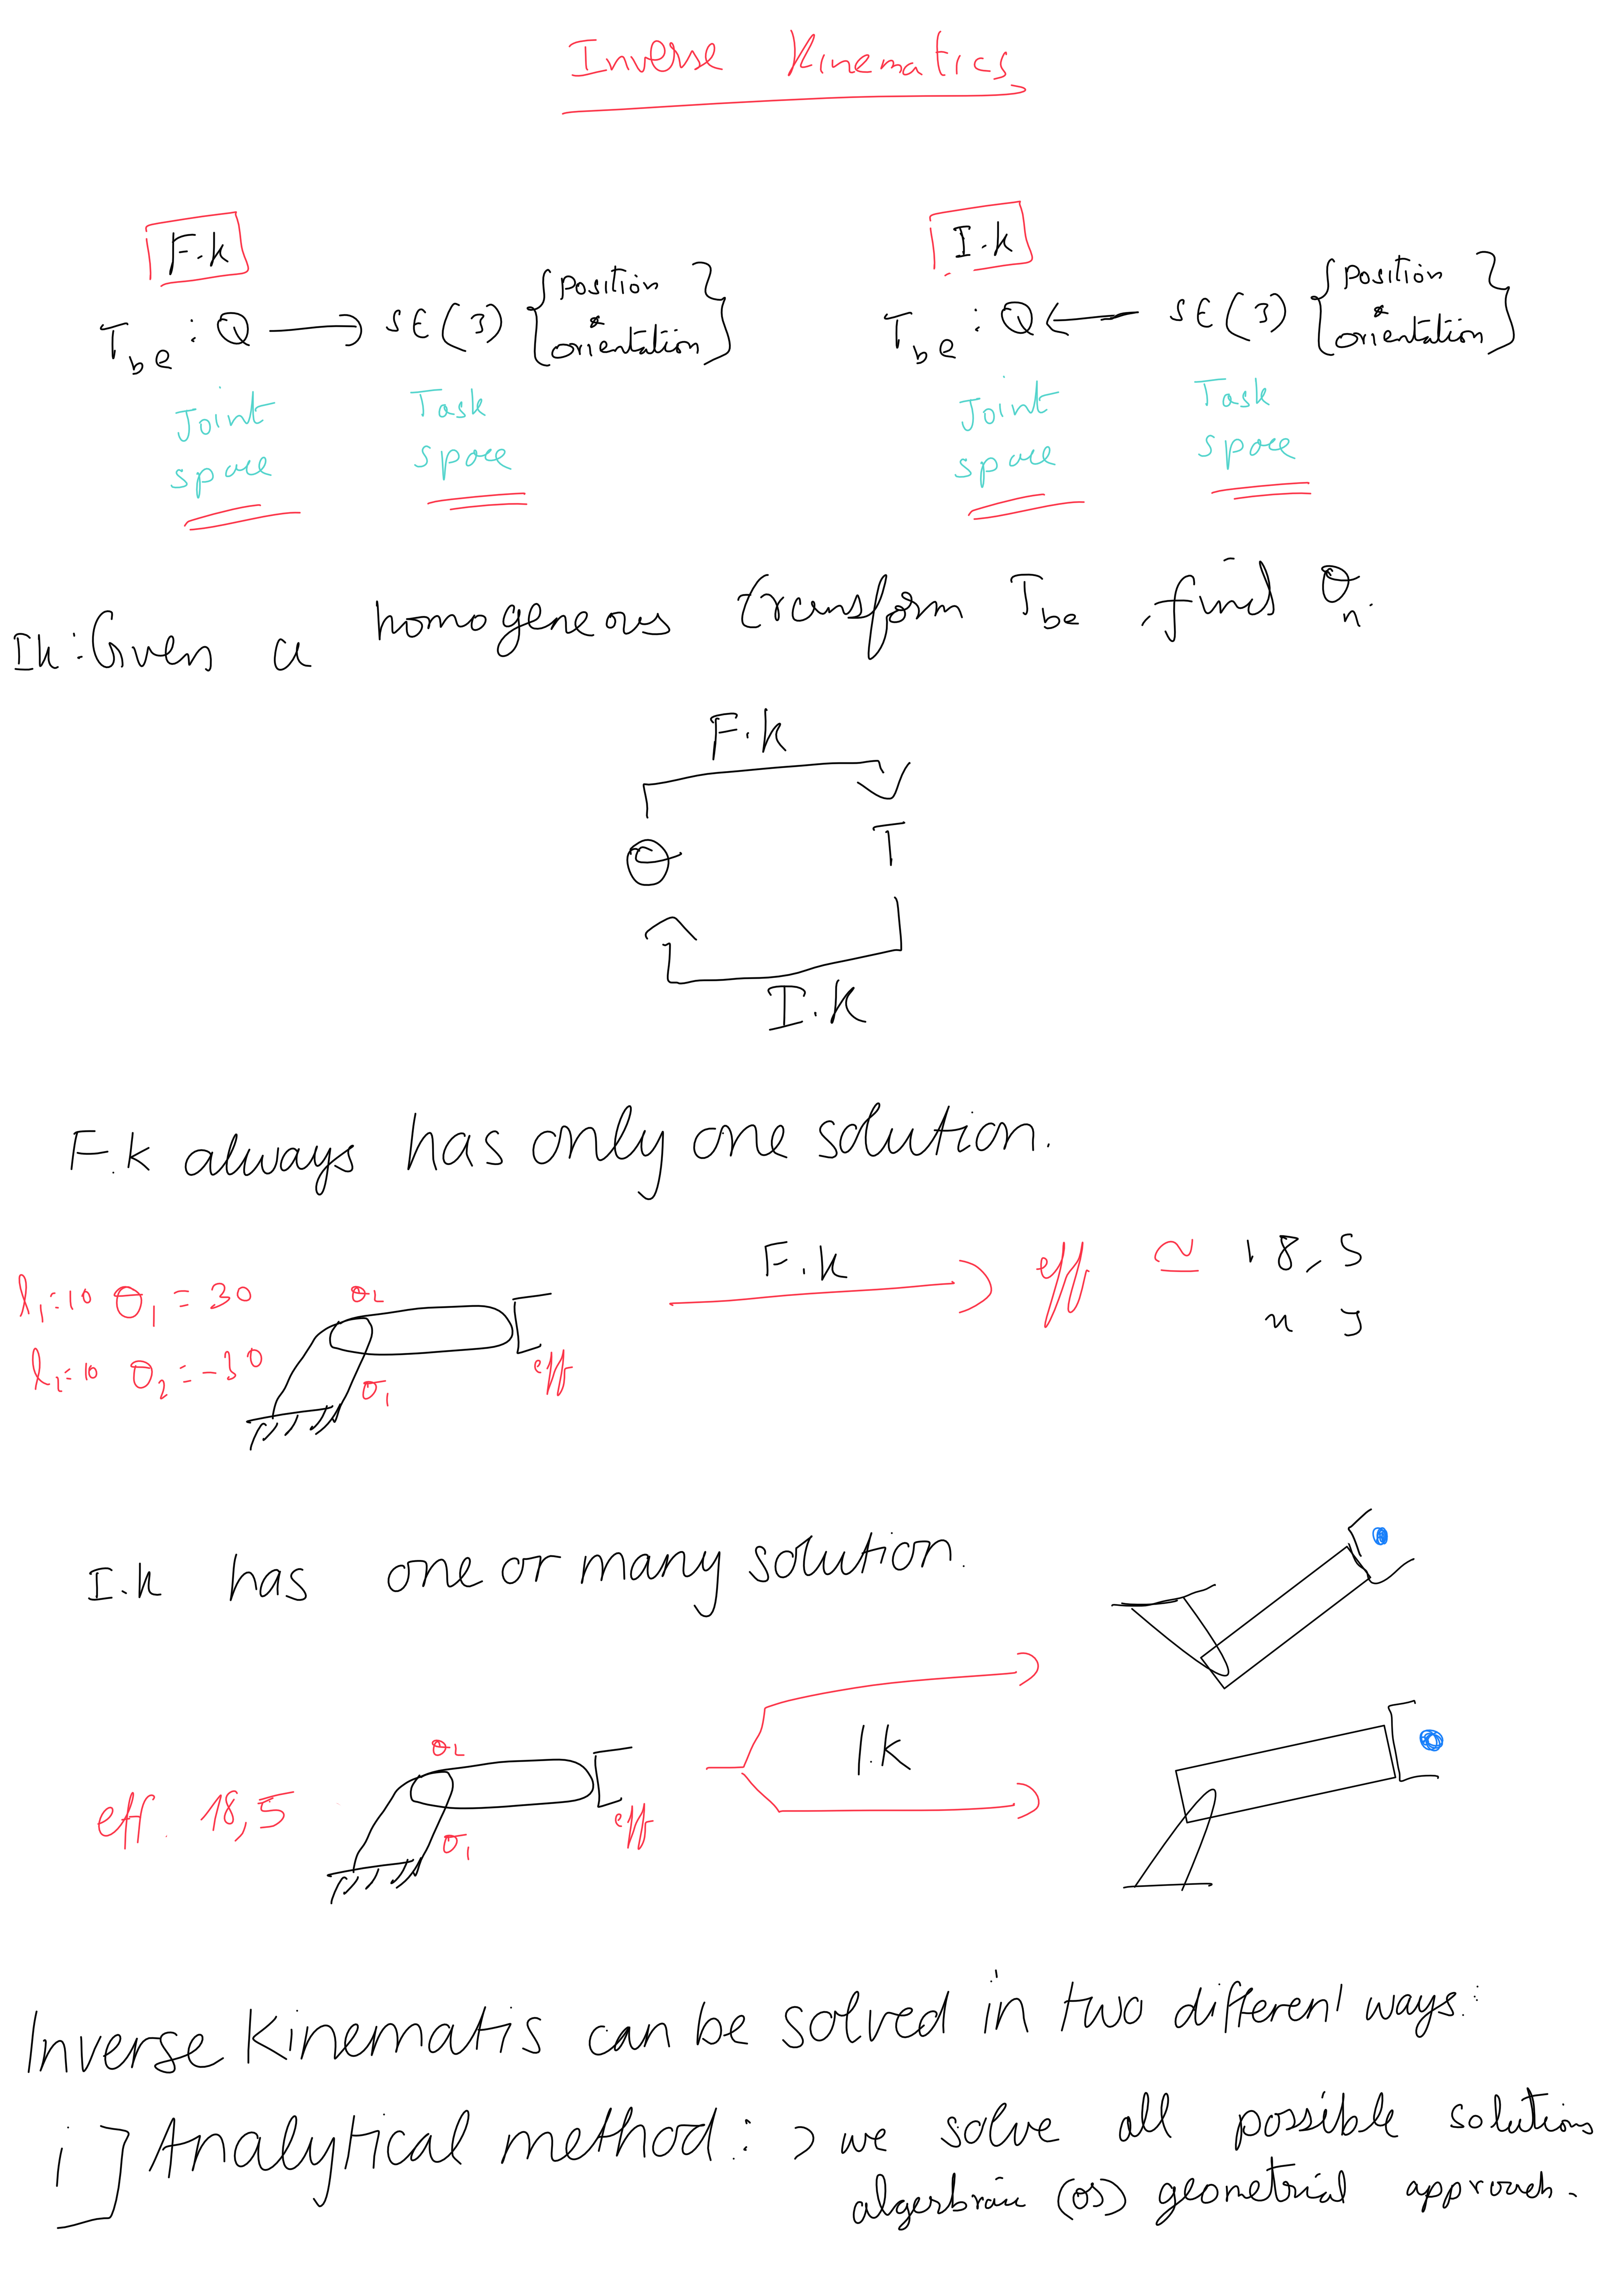 Inverse Kinematics
F.k
I.k
T be : Q → SE(3) { Position & orientation }
T be : Q ← SE(3) { Position & orientation }
Joint space
Task space
Joint space
Task space
Ik : Given a homogeneous transform T be , find θ n.
F.k
Θ T
I.K
F.k always has only one solution.
l1=10 θ1 = 30
l2=10 θ2 = -30
θ2
θ1
eff
F.k
eff ≃ 18, 5
x y
I.k has one or many solution.
eff. 18,5
θ2
θ1
eff
I.K
Inverse Kinematis can be solved in two different ways:
i] Analytical method : > we solve all possible solutions
algerbraic (or) geometrial approach.